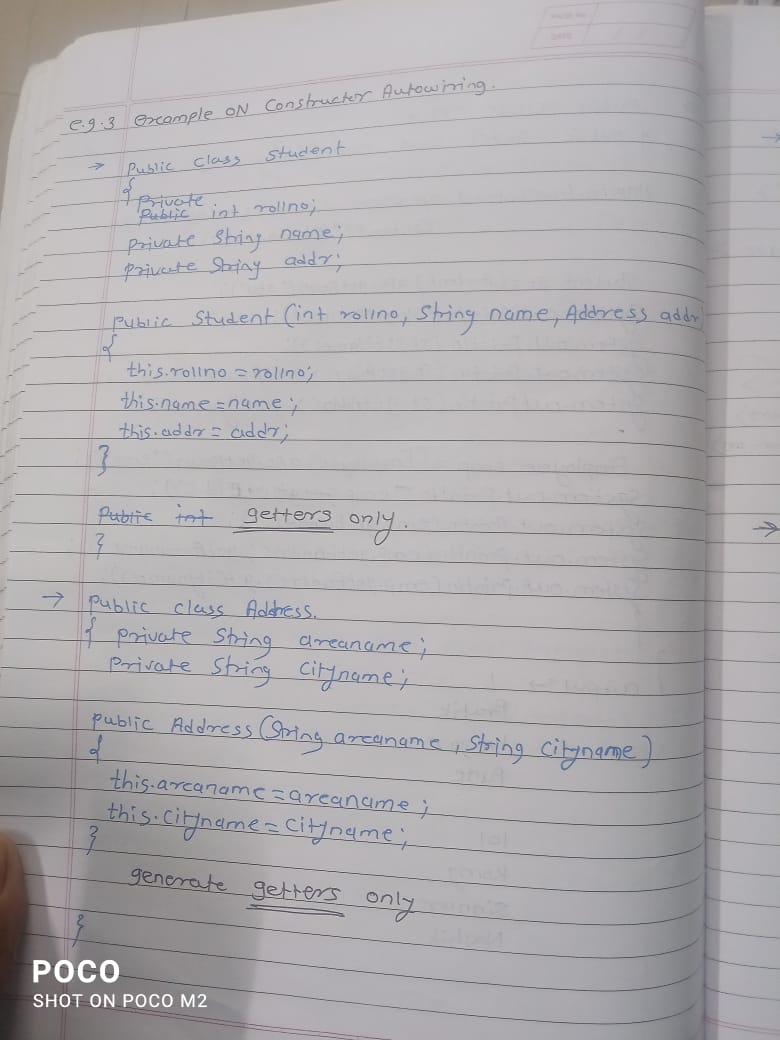 PAGE No.
DATE
e.g.3 Example ON Constructor Autowiring.
→ Public class Student
{
Private
Public int rollno;
private String name;
private String addr;
Public Student (int rollno, String name, Address addr
{
this.rollno = rollno;
this.name = name;
this.addr = addr;
}
Public int getters only.
}
→ Public class Address.
{ private String areaname;
Private String Cityname;
public Address (String areaname, String Cityname)
{
this.areaname = areaname;
this.Cityname = Cityname;
}
generate getters only
}
POCO
SHOT ON POCO M2